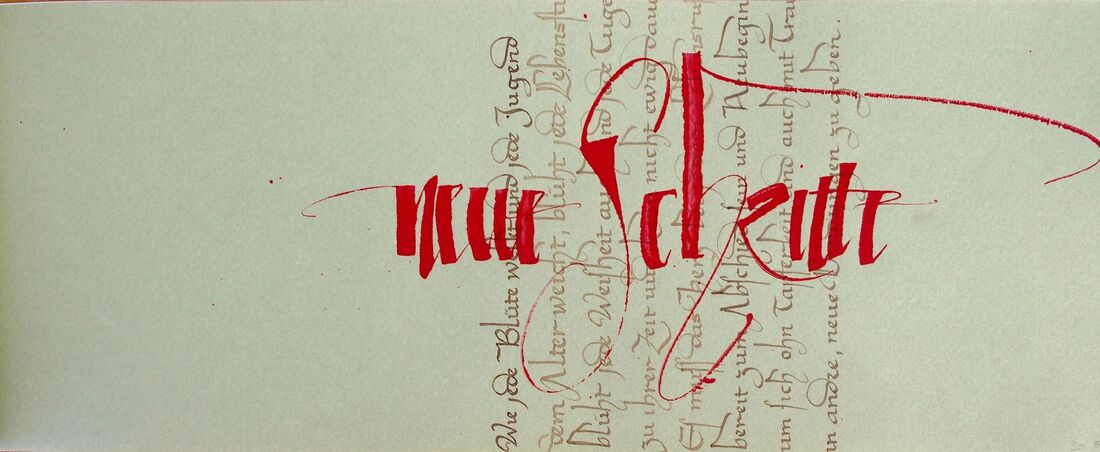 neue Schritte
Wie jede Blüte welkt und jede Jugend
dem Alter weicht, blüht jede Lebensstu
blüht jede Weisheit auch und jede Tuge
zu ihrer Zeit und nicht ewig daue
Es muss das Herz
bereit zum Abschied sein und Neubegin
um sich ohn Tapferkeit und auch mit Trau
in andre, neue zu geben.